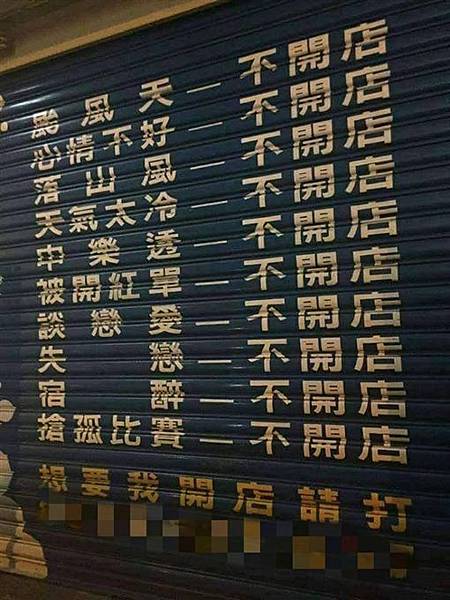 颱風天—不開店
心情不好—不開店
落山風—不開店
天氣太冷—不開店
中樂透—不開店
被開紅單—不開店
談戀愛—不開店
失戀—不開店
宿醉—不開店
搶孤比賽—不開店
想要我開店請打